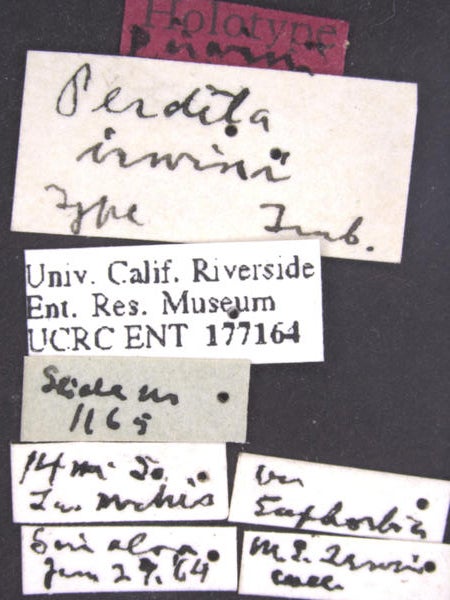 Holotype
Perdita
irwini
Type Timb.
Univ. Calif. Riverside
Ent. Res. Museum
UCRC ENT 177164
Slide no
1165
14 mi So.
Los Mochis
Sinaloa
Jun 27.64
on
Euphorbia
M. E. Irwin
coll